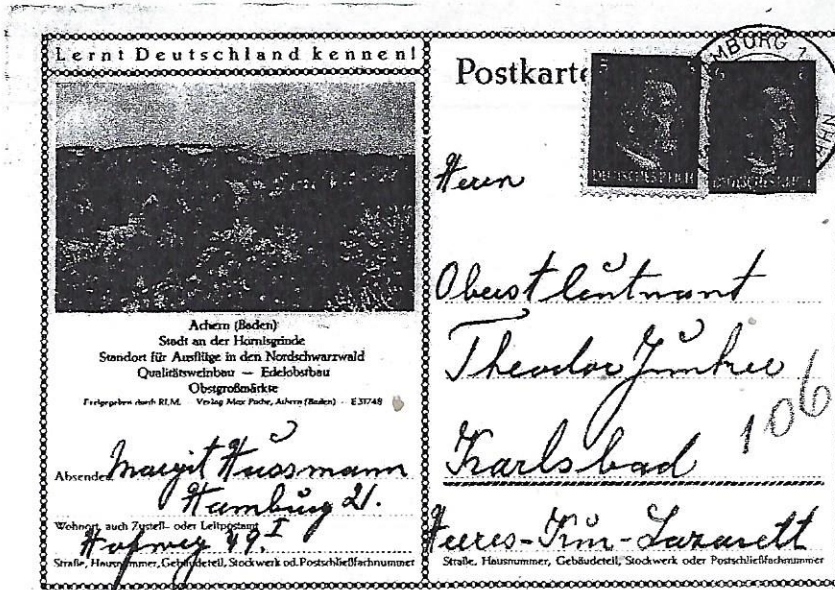 Lernt Deutschland kennen!
Achern (Baden)
Stadt an der Hornisgrinde
Standort für Ausflüge in den Nordschwarzwald
Qualitätsweinbau — Edelobstbau
Obstgroßmärkte
Freigegeben durch RLM. Verlag Max Puche, Achern (Baden) - E31748
Absender: Margit Hussmann
Hamburg 21.
Wohnort, auch Zustell- oder Leitpostamt
Hofweg 49.I
Straße, Hausnummer, Gebäudeteil, Stockwerk od. Postschließfachnummer
Postkarte
MBURG 1
DEUTSCHES REICH
DEUTSCHES REICH
Herrn
Oberstleutnant
Theodor
Karlsbad
106
Heeres-Kur-Lazarett
Straße, Hausnummer, Gebäudeteil, Stockwerk oder Postschließfachnummer